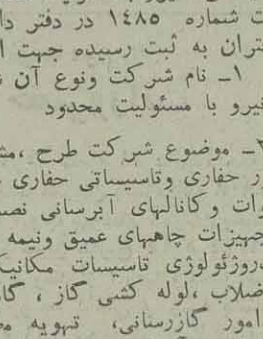 ت شماره ۱۴۸۵ در دفتر
تران به ثبت رسیده جهت
۱ـ نام شرکت ونوع آن
نیرو با مسئولیت محدود
ـ موضوع شرکت طرح ،
ر حفاری وتاسیساتی حفاری
رات و کانالهای آبرسانی
جهیزات چاههای عمیق ونیمه
روژئولوژی تاسیسات
ضلاب ،لوله کشی گاز ،
امور گازرسانی، تهویه